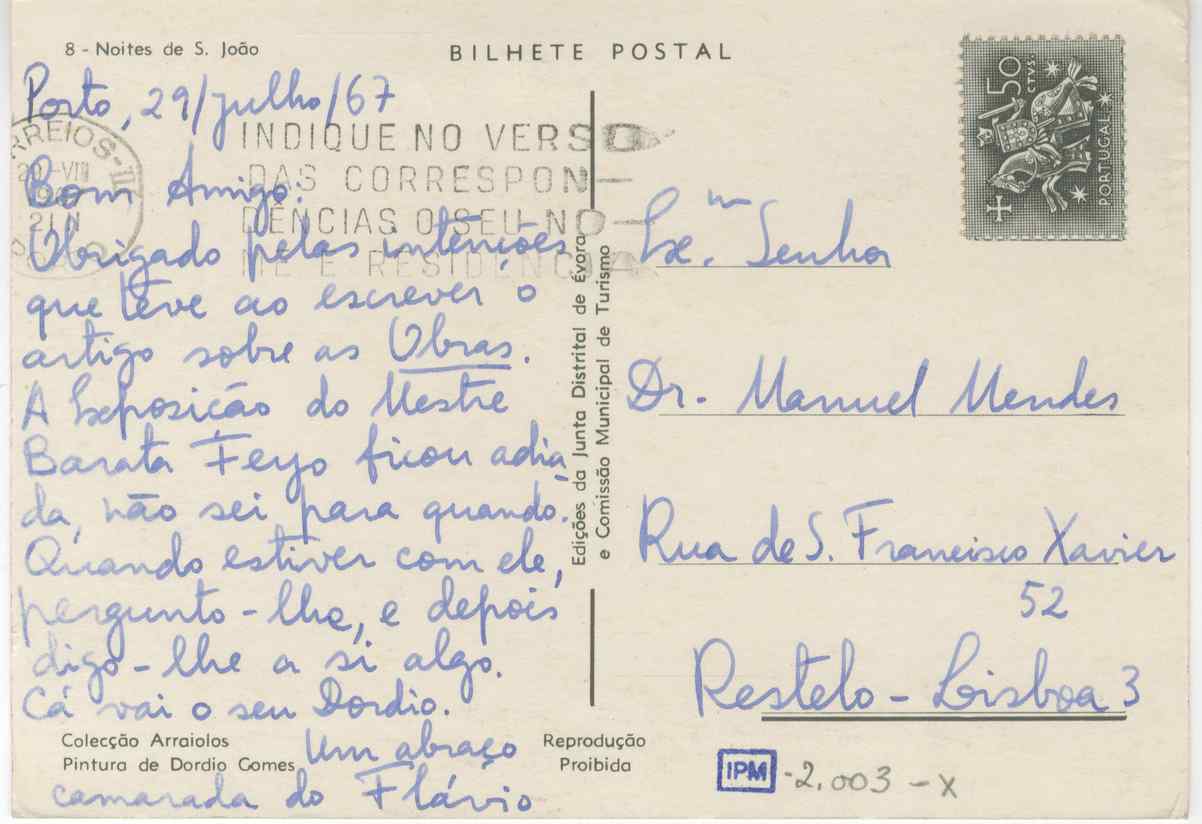 8 - Noites de S. João
BILHETE POSTAL
50
CTVS.
PORTUGAL
Porto, 29/julho/67
Bom Amigo:
Obrigado pelas intenções
que teve ao escrever o
artigo sobre as Obras.
A Exposição do Mestre
Barata Feyo ficou adia-
da, não sei para quando.
Quando estiver com ele,
pergunto-lhe, e depois
digo-lhe a si algo.
Cá vai o seu Dordio.
Um abraço
camarada do Flávio
RREIOS-III
21 N
INDIQUE NO VERSO
DAS CORRESPON-
DÊNCIAS O SEU NO-
ME E RESIDÊNCIA
Edições da Junta Distrital de Évora
e Comissão Municipal de Turismo
Ex.m Senhor
Dr. Manuel Mendes
Rua de S. Francisco Xavier
52
Restelo - Lisboa 3
Colecção Arraiolos
Pintura de Dordio Gomes
Reprodução
Proibida
IPM -2.003-X